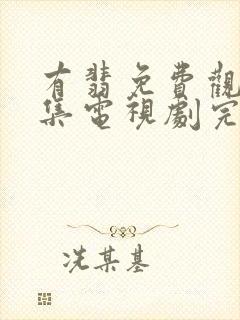 有翡免費觀
集電視劇完
冼某基